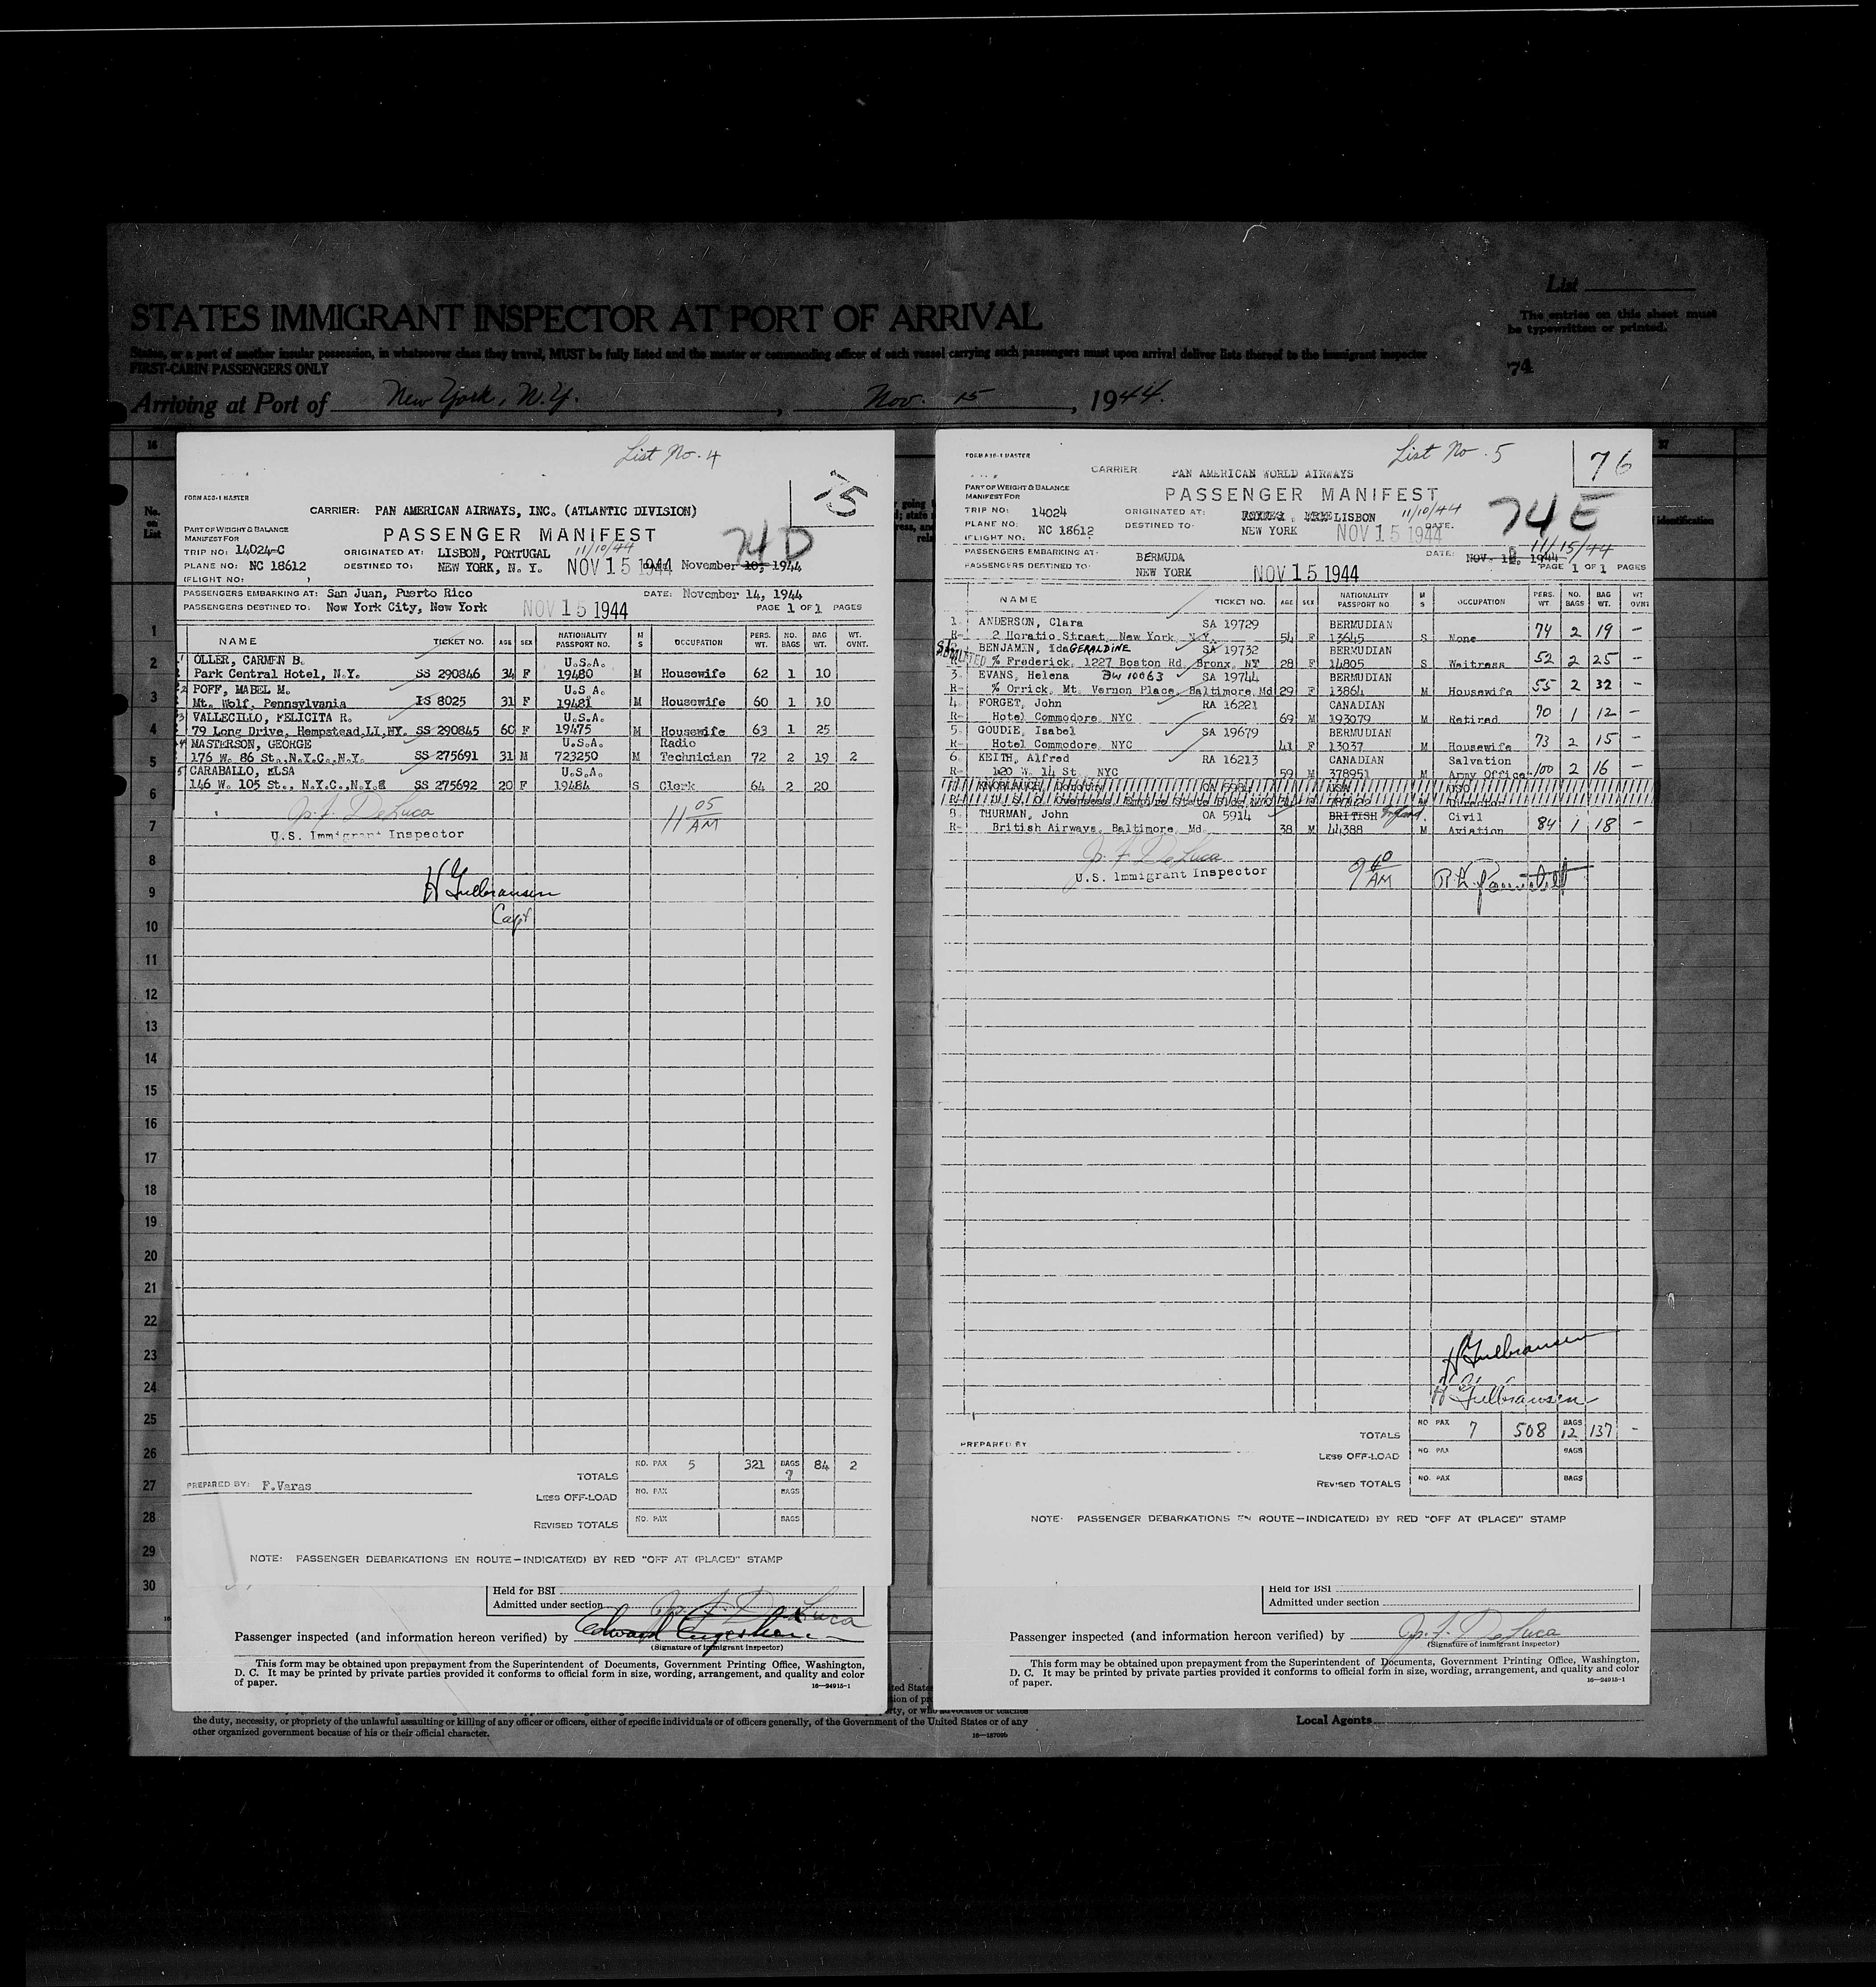 List
The entries on this sheet must
be typewritten or printed.
STATES IMMIGRANT INSPECTOR AT PORT OF ARRIVAL
States, or a port of another insular possession, in whatsoever class they travel, MUST be fully listed and the master or commanding officer of each vessel carrying such passengers must upon arrival deliver lists thereof to the immigrant inspector
FIRST-CABIN PASSENGERS ONLY
74
Arriving at Port of New York, N.Y., Nov. 15, 1944.
16
No. on List
List No. 4
75
FORM ADS-1 MASTER
CARRIER: PAN AMERICAN AIRWAYS, INC. (ATLANTIC DIVISION)
PART OF WEIGHT & BALANCE
MANIFEST FOR
PASSENGER MANIFEST
74D
TRIP NO: 14024-C
ORIGINATED AT: LISBON, PORTUGAL 11/10/44
PLANE NO: NC 18612
DESTINED TO: NEW YORK, N. Y. NOV 15 1944 November 10, 1944
(FLIGHT NO: )
PASSENGERS EMBARKING AT: San Juan, Puerto Rico DATE: November 14, 1944
PASSENGERS DESTINED TO: New York City, New York NOV 15 1944 PAGE 1 OF 1 PAGES
NAME TICKET NO. AGE SEX NATIONALITY PASSPORT NO. M S OCCUPATION PERS. WT. NO. BAGS BAG WT. WT. OVNT.
1 OLLER, CARMEN B. U.S.A.
Park Central Hotel, N.Y. SS 290846 34 F 19480 M Housewife 62 1 10
2 POFF, MABEL M. U.S A.
Mt. Wolf, Pennsylvania IS 8025 31 F 19481 M Housewife 60 1 10
3 VALLECILLO, FELICITA R. U.S.A.
79 Long Drive, Hempstead,LI,NY. SS 290845 60 F 19475 M Housewife 63 1 25
4 MASTERSON, GEORGE U.S.A. Radio
176 W. 86 St.,N.Y.C.,N.Y. SS 275691 31 M 723250 M Technician 72 2 19 2
5 CARABALLO, ELSA U.S.A.
146 W. 105 St., N.Y.C.,N.Y. SS 275692 20 F 19484 S Clerk 64 2 20
J. F. DeLuca
U.S. Immigrant Inspector
11 05 AM
H Gulbransen
Capt
1
2
3
4
5
6
7
8
9
10
11
12
13
14
15
16
17
18
19
20
21
22
23
24
25
26
27
28
29
30
TOTALS NO. PAX 5 321 BAGS 7 84 2
PREPARED BY: F.Varas
LESS OFF-LOAD NO. PAX BAGS
REVISED TOTALS NO. PAX BAGS
NOTE: PASSENGER DEBARKATIONS EN ROUTE—INDICATE(D) BY RED "OFF AT (PLACE)" STAMP
Held for BSI
Admitted under section
J. F. DeLuca
Passenger inspected (and information hereon verified) by
(Signature of immigrant inspector)
This form may be obtained upon prepayment from the Superintendent of Documents, Government Printing Office, Washington,
D. C. It may be printed by private parties provided it conforms to official form in size, wording, arrangement, and quality and color
of paper.
16—24915-1
the duty, necessity, or propriety of the unlawful assaulting or killing of any officer or officers, either of specific individuals or of officers generally, of the Government of the United States or of any
other organized government because of his or their official character.
16—18709b
List No. 5
76
FORM ADS-1 MASTER
CARRIER PAN AMERICAN WORLD AIRWAYS
PART OF WEIGHT & BALANCE
MANIFEST FOR
PASSENGER MANIFEST
74E
TRIP NO: 14024
ORIGINATED AT: LISBON 11/10/44
PLANE NO: NC 18612
DESTINED TO: NEW YORK NOV 15 1944 DATE.
(FLIGHT NO:
PASSENGERS EMBARKING AT: BERMUDA DATE: 11/15/44
PASSENGERS DESTINED TO: NEW YORK NOV 15 1944 PAGE 1 OF 1 PAGES
NAME TICKET NO. AGE SEX NATIONALITY PASSPORT NO. M S OCCUPATION PERS. WT. NO. BAGS BAG WT. WT OVNT
1. ANDERSON, Clara SA 19729 BERMUDIAN
R- 2 Horatio Street, New York, N.Y. 54 F 13645 S None 74 2 19 -
BENJAMIN, Ida GERALDINE SA 19732 BERMUDIAN
% Frederick, 1227 Boston Rd, Bronx, NY 28 F 14805 S Waitress 52 2 25 -
3. EVANS, Helena BW 10063 SA 19744 BERMUDIAN
R- % Orrick, Mt. Vernon Place, Baltimore, Md 29 F 13864 M Housewife 55 2 32 -
4. FORGET, John RA 16221 CANADIAN
R- Hotel Commodore, NYC 69 M 193079 M Retired 70 1 12 -
5. GOUDIE, Isabel SA 19679 BERMUDIAN
R- Hotel Commodore, NYC 41 F 13037 M Housewife 73 2 15 -
6. KEITH, Alfred RA 16213 CANADIAN Salvation
R- 120 W. 14 St., NYC 59 M 378951 M Army Officer 100 2 16 -
KNOBLAUCH, Dorothy OA 5984 USA USO
R- U. S. O. Overseas, Empire State Bldg NYC Director
8. THURMAN, John OA 5914 BRITISH Civil
R- British Airways, Baltimore, Md. 38 M 44388 M Aviation 84 1 18 -
J. F. DeLuca
U.S. Immigrant Inspector
9 40 AM
H Gulbransen
H Gulbransen
TOTALS NO PAX 7 508 BAGS 12 137 -
PREPARED BY
LESS OFF-LOAD NO. PAX BAGS
REVISED TOTALS NO. PAX BAGS
NOTE: PASSENGER DEBARKATIONS EN ROUTE—INDICATE(D) BY RED "OFF AT (PLACE)" STAMP
Held for BSI
Admitted under section
Passenger inspected (and information hereon verified) by J. F. DeLuca
(Signature of immigrant inspector)
This form may be obtained upon prepayment from the Superintendent of Documents, Government Printing Office, Washington,
D. C. It may be printed by private parties provided it conforms to official form in size, wording, arrangement, and quality and color
of paper.
16—24915-1
Local Agents